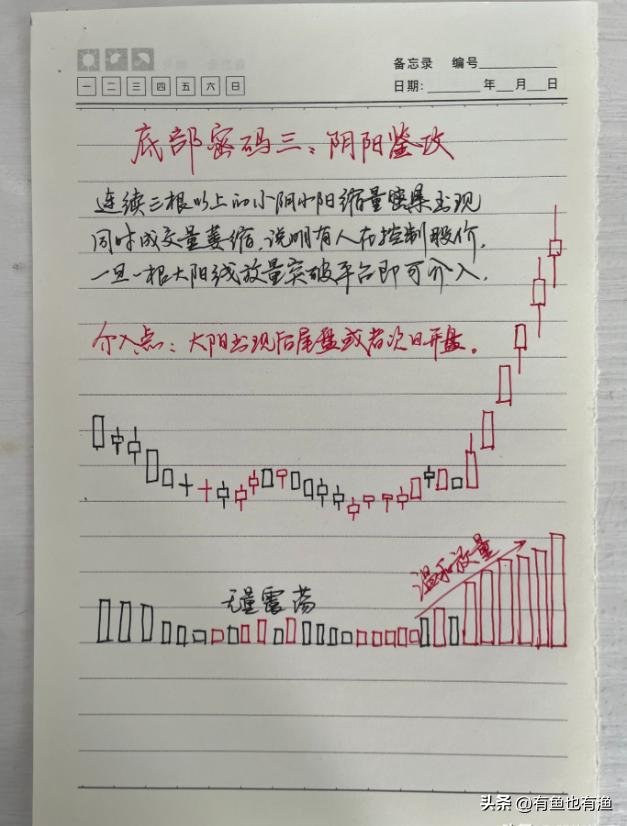 备忘录 编号
一 二 三 四 五 六 日
日期: 年 月 日
底部密码三：阴阳鉴攻
连续三根以上的小阴小阳缩量
同时成交量萎缩，说明有人在控制股价，
一旦一根大阳线放量突破平台即可介入，
介入点：大阳出现后尾盘或者次日开盘。
无量震荡
温和放量
头条 @有鱼也有渔